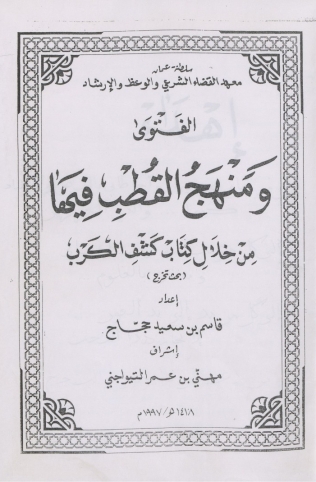 سلطنة عمان
معهد القضاء الشرعي والوعظ والإرشاد
الفتوى
ومنهج القطب فيها
من خلال كتاب كشف الكرب
(بحث تخرج)
إعداد
قاسم بن سعيد حجاج
إشراف
مهني بن عمر التيواجني
١٤١٨هـ / ١٩٩٧م